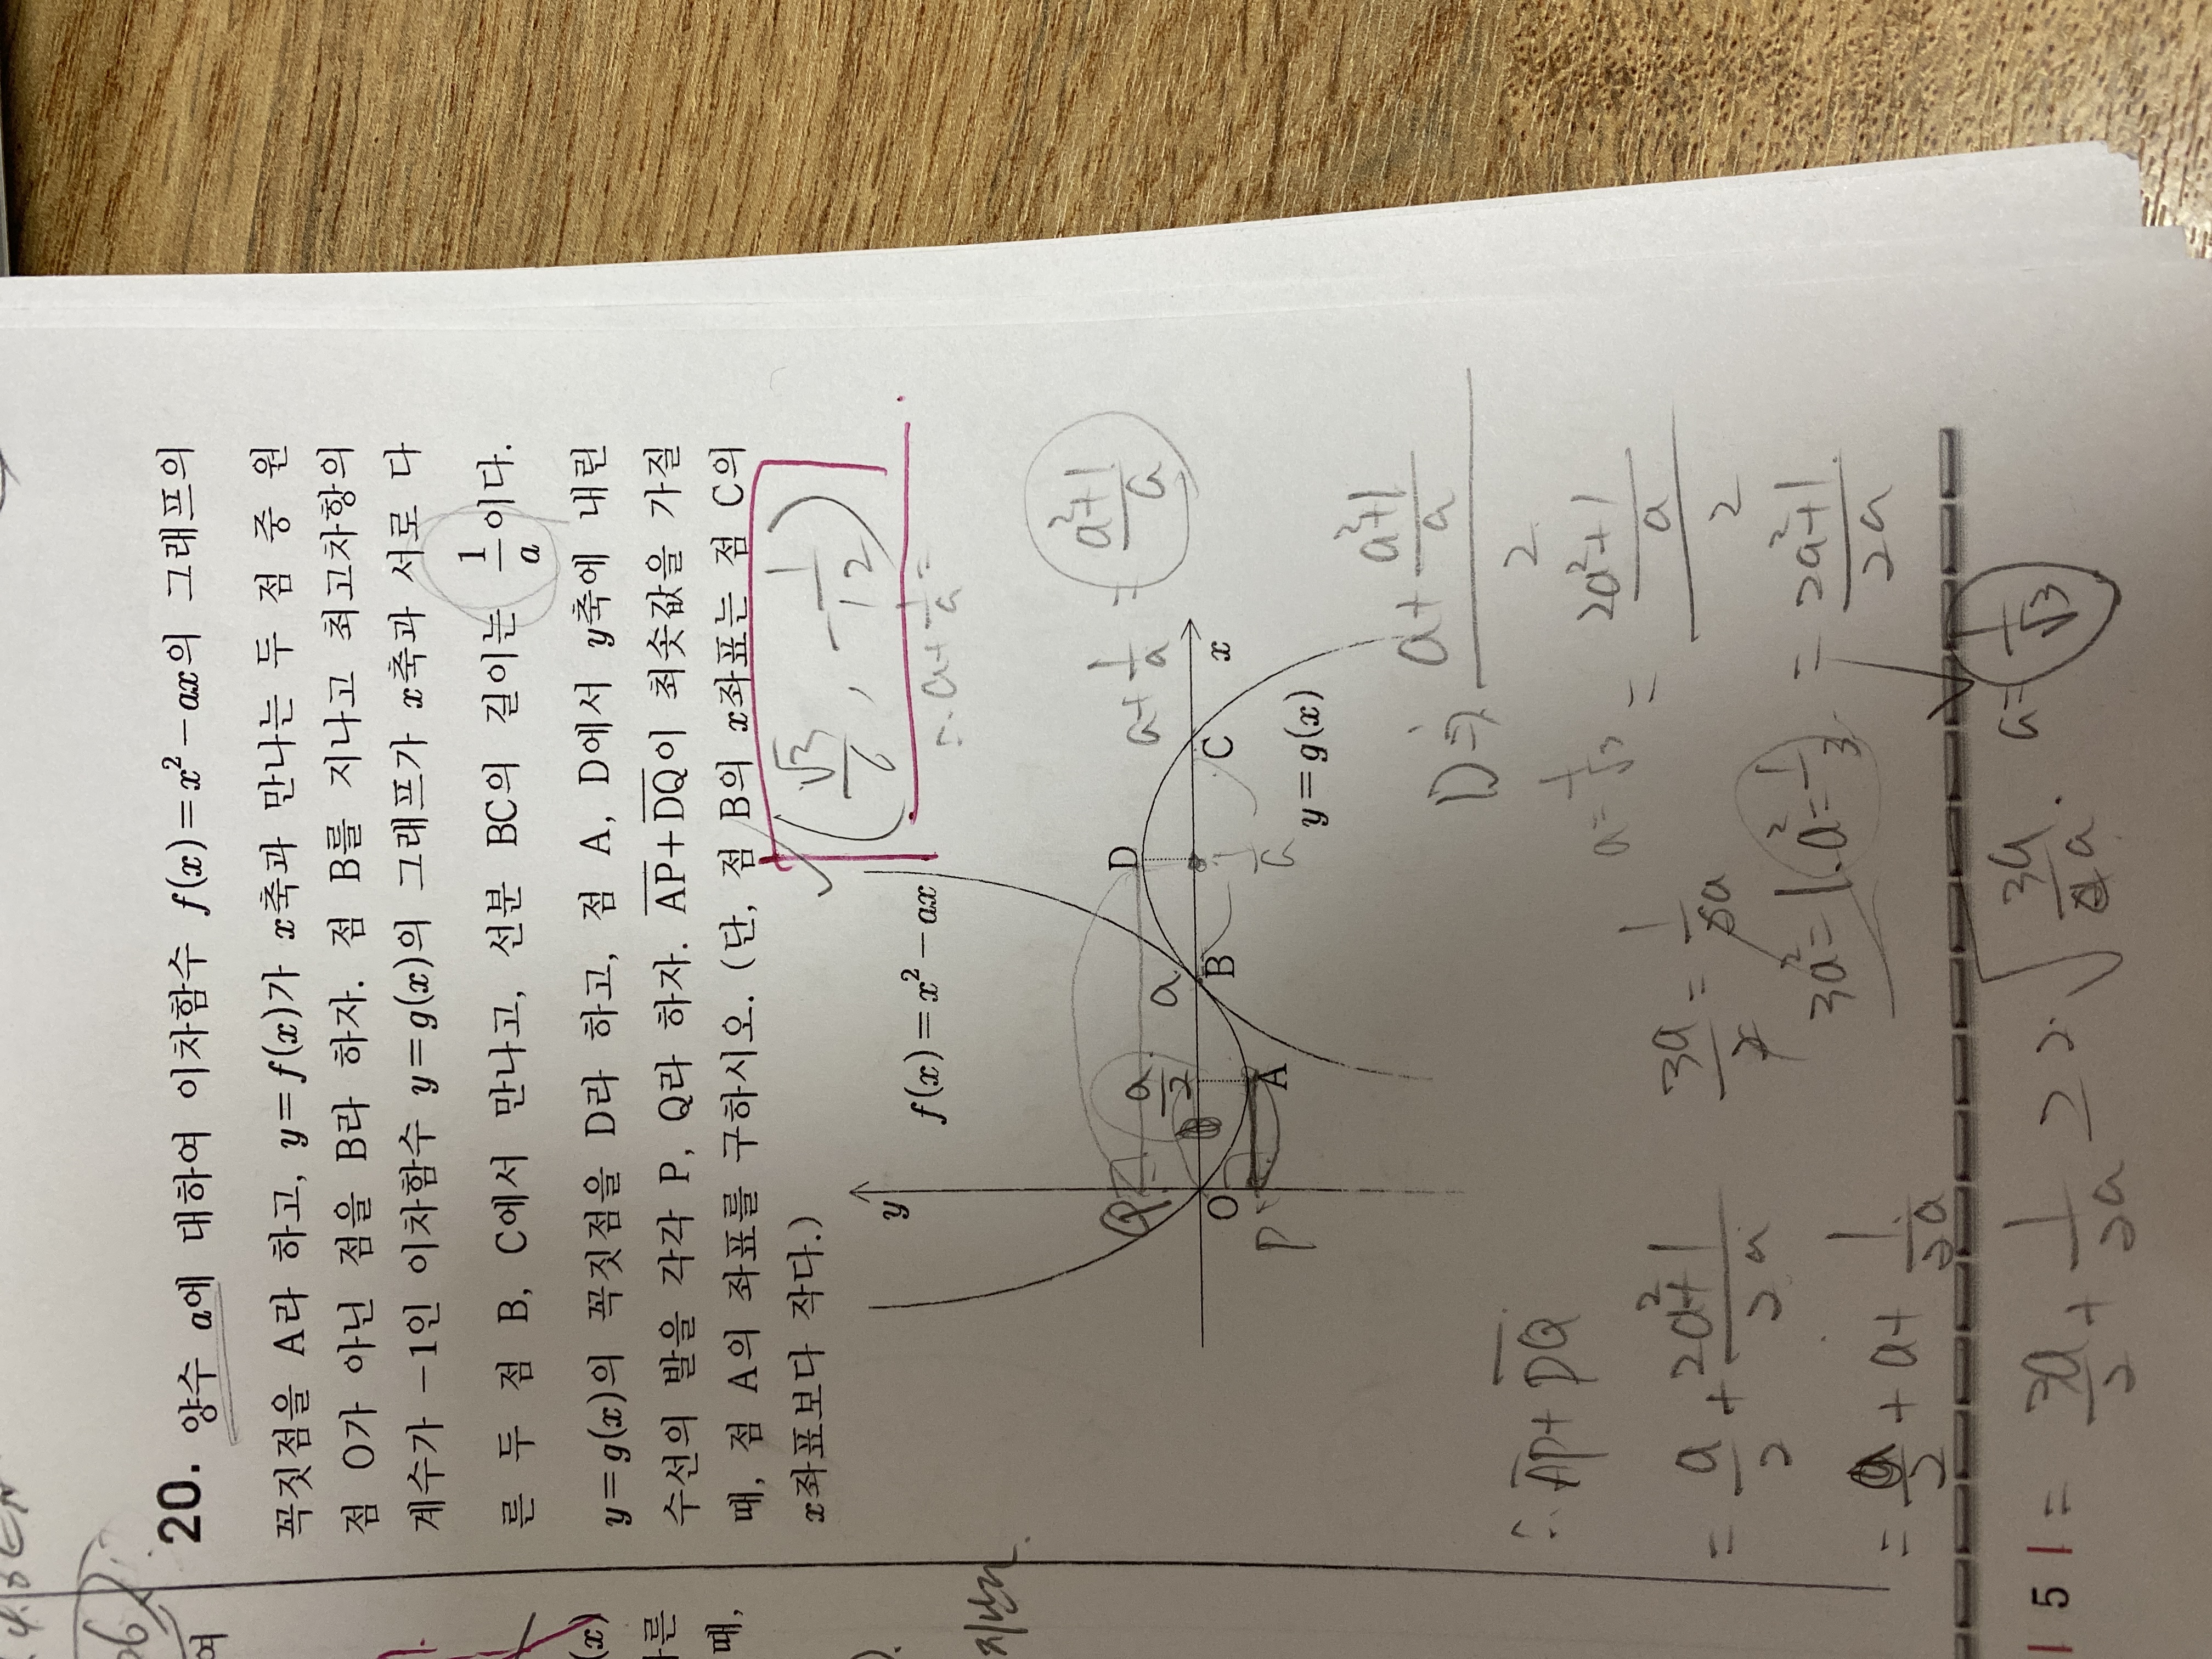 20. 양수 a에 대하여 이차함수 f(x)=x²-ax의 그래프의
꼭짓점을 A라 하고, y=f(x)가 x축과 만나는 두 점 중 원
점 O가 아닌 점을 B라 하자. 점 B를 지나고 최고차항의
계수가 -1인 이차함수 y=g(x)의 그래프가 x축과 서로 다
른 두 점 B, C에서 만나고, 선분 BC의 길이는 1/a이다.
y=g(x)의 꼭짓점을 D라 하고, 점 A, D에서 y축에 내린
수선의 발을 각각 P, Q라 하자. AP+DQ이 최솟값을 가질
때, 점 A의 좌표를 구하시오. (단, 점 B의 x좌표는 점 C의
x좌표보다 작다.)
(√3/6, -1/12)
∴ a+1/a=
y
f(x)=x²-ax
a+1/a = (a²+1)/a
Q
a/2
a
D
O
B
C
x
P
A
1/a
y=g(x)
D⇒ (a+(a²+1)/a)/2
= ((2a²+1)/a)/2
= (2a²+1)/2a
a=1/√3
∴ AP+DQ
= a/2 + (2a²+1)/2a
= a/2 + a + 1/2a
3a/2 = 1/2a
3a²=1. a²=1/3
a= 1/√3
= 3a/2 + 1/2a ≥ 2√
151
여
(x)
다른
때,
).